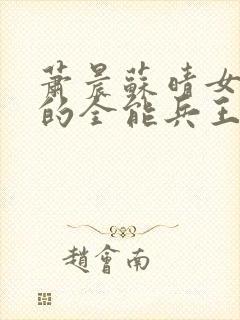 蕭晨蘇晴女
的全能兵王
趙會南